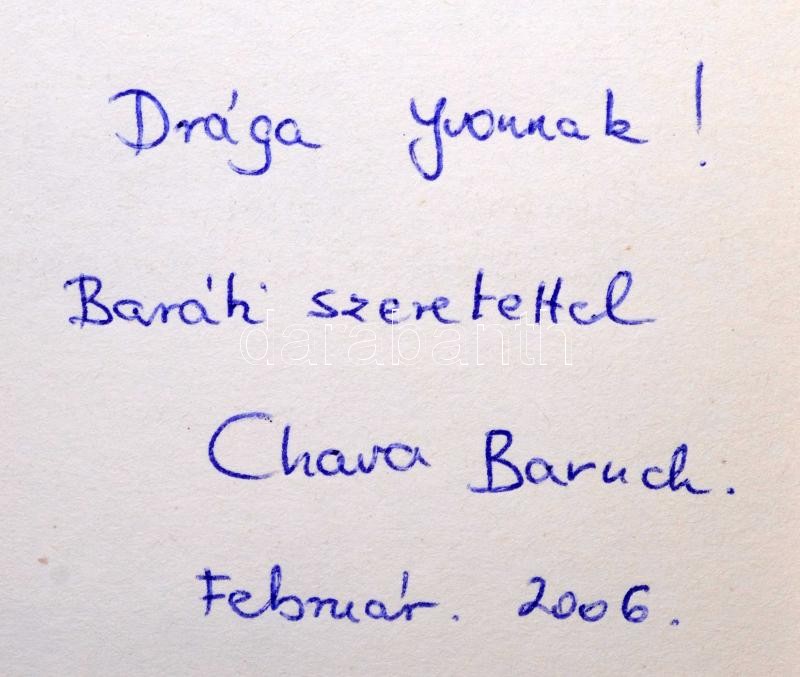 Drága Yvonnak!
Baráti szeretettel
darabanth
Chava Baruch.
Február. 2006.